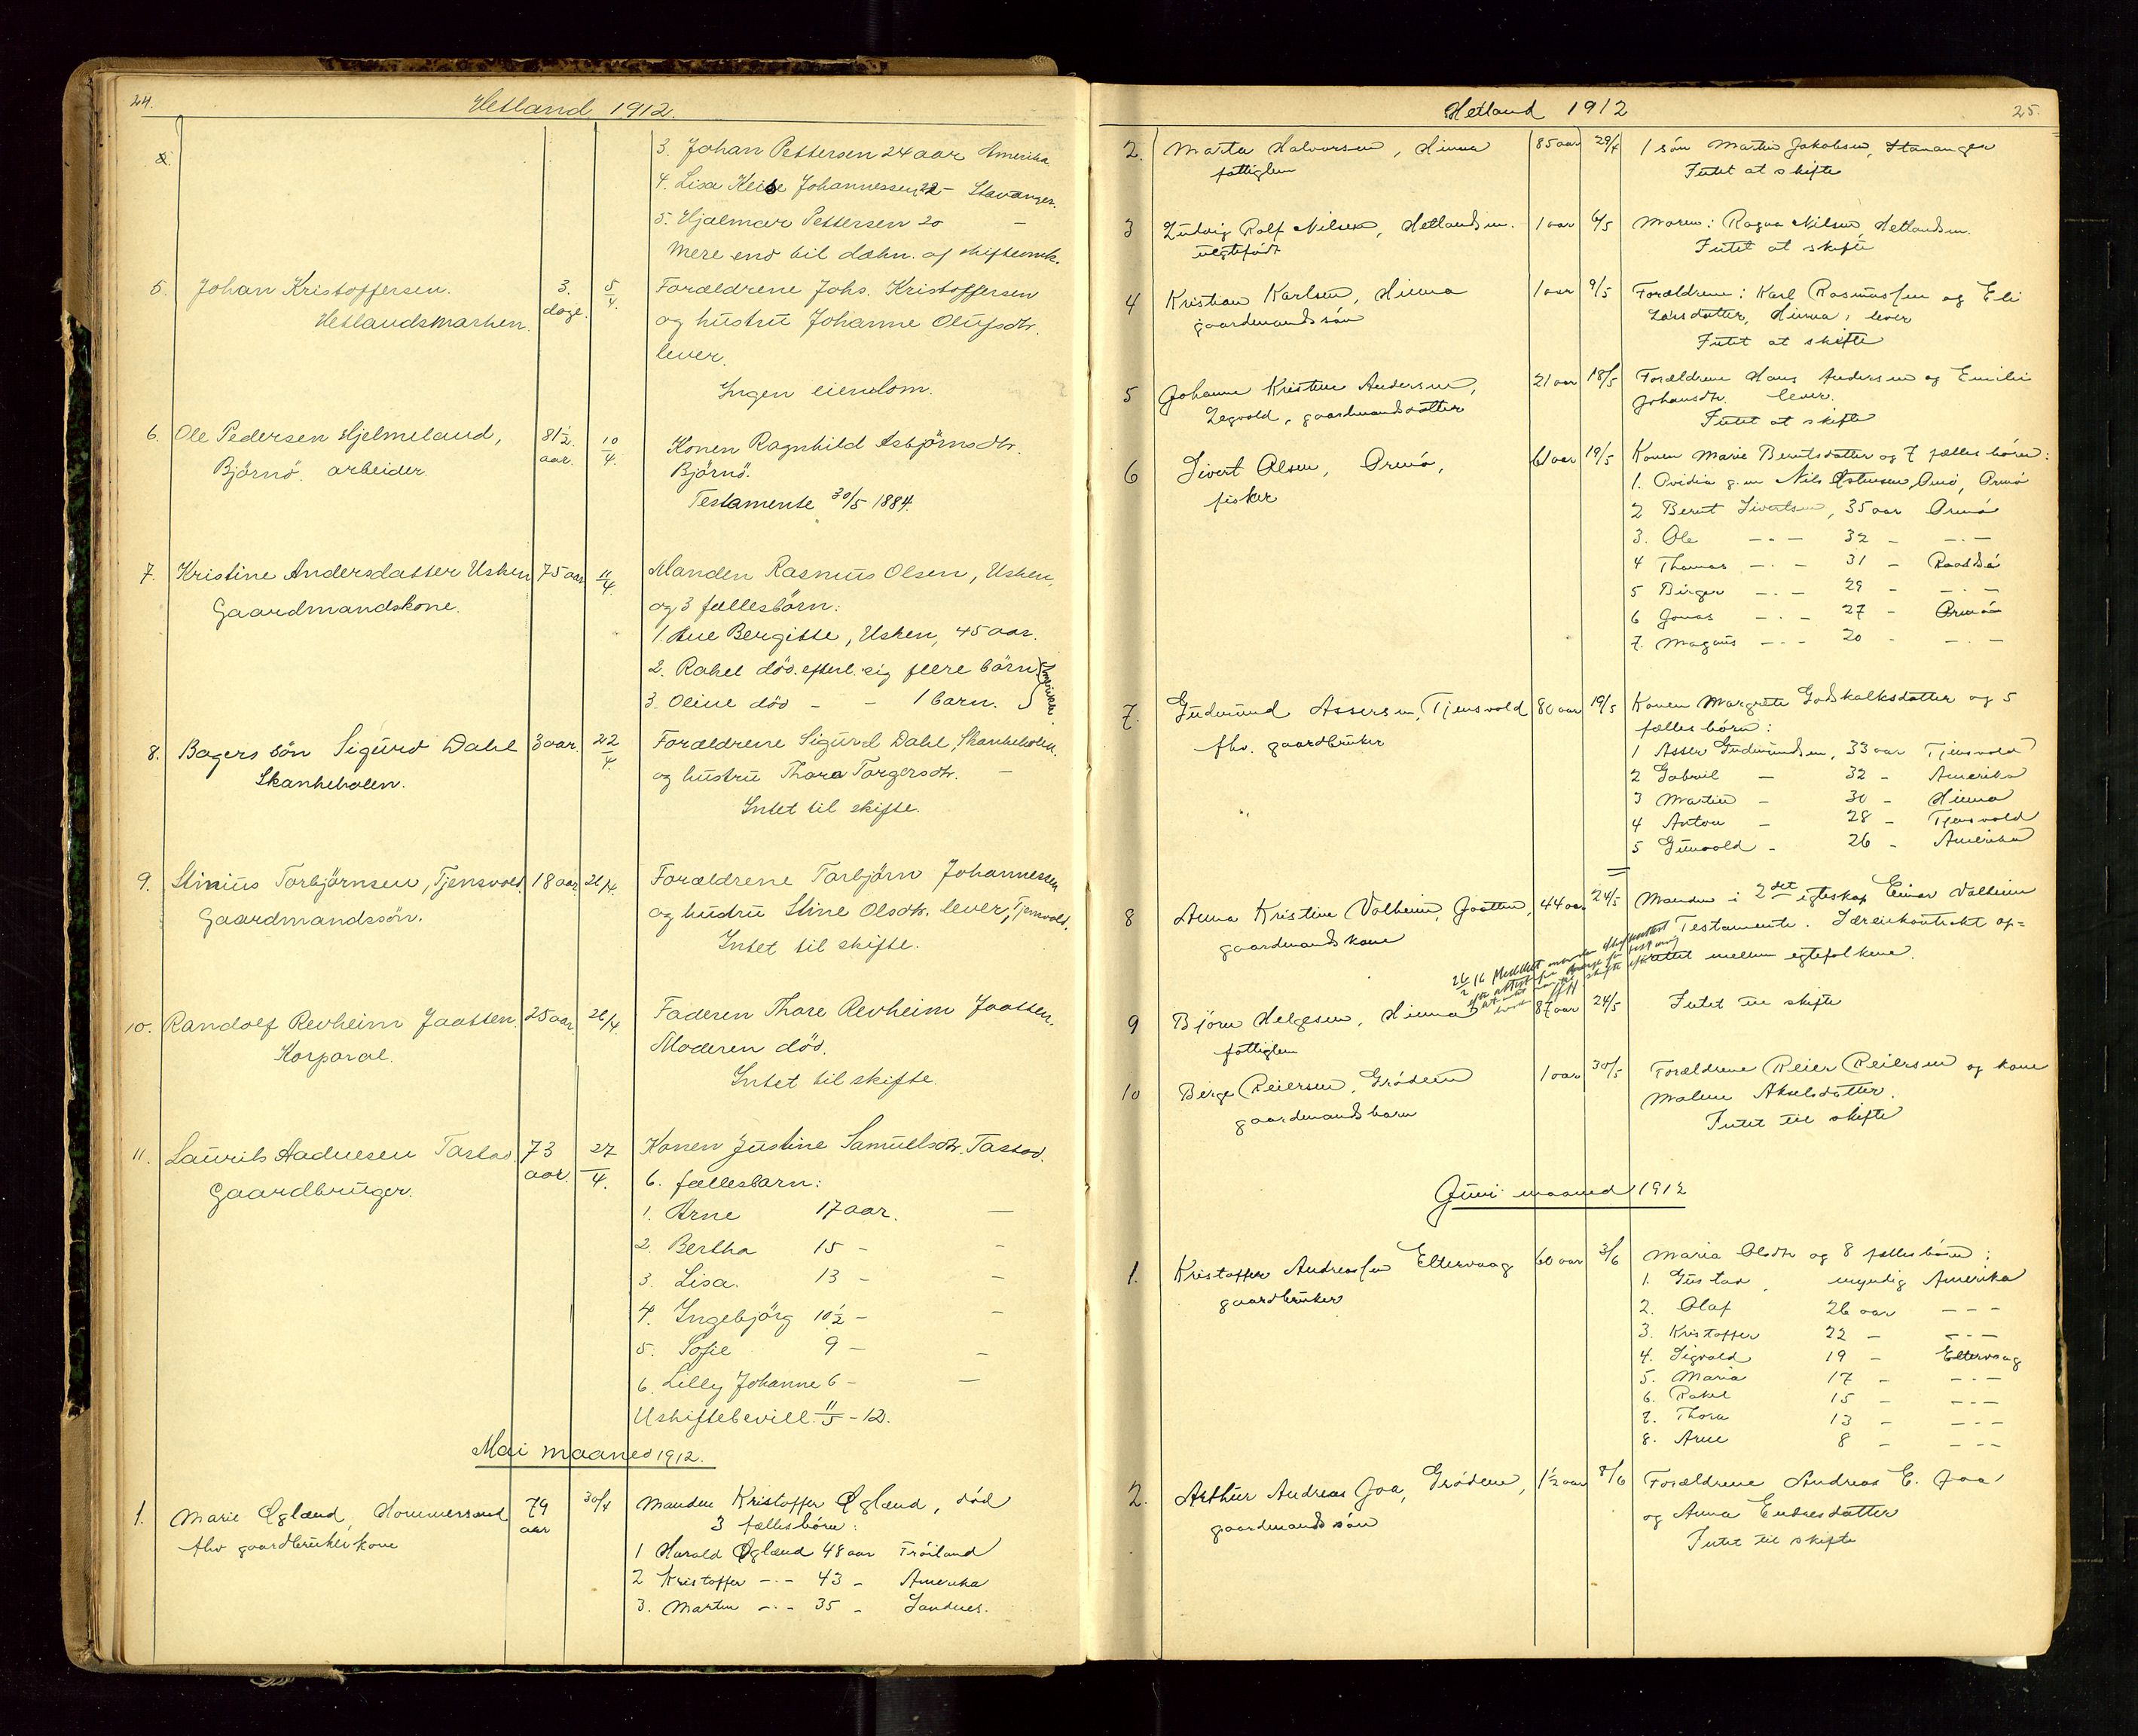 24.
Hetland 1912.
3. Johan Pettersen 24 aar Amerika
4. Lisa Johannessen 22 – Stavanger.
5. Hjalmar Pettersen 20 –
Mere end til dækn. af skifteomk.
5. Johan Kristoffersen. 3. 5/4. Forældrene Johs. Kristoffersen
Hetlandsmarken. dage. og hustru Johanne Olufsdtr.
lever.
Ingen eiendom.
6. Ole Pedersen Hjelmeland, 81½ 10/4. Konen Ragnhild Asbjörnsdtr.
Björnö. arbeider. aar. Björnö.
Testamente 30/5 1884.
7. Kristine Andersdatter Usken 75 aar 11/4. Manden Rasmus Olsen, Usken,
Gaardmandskone. og 3 fællesbörn:
1. Ane Bergitte, Usken, 45 aar.
2. Rakel död. efterl. sig flere börn } Amerika.
3. Oline död – – 1 barn.
8. Bagers sön Sigurd Dahl 3 aar. 22/4. Forældrene Sigurd Dahl, Skankeholen.
Skankeholen. og hustru Thora Torgersdtr. –
Intet til skifte.
9. Stinius Torbjörnsen, Tjensvold. 18 aar 26/4. Forældrene Torbjörn Johannessen
Gaardmandssön. og hustru Stine Olsdtr. lever, Tjensvold.
Intet til skifte.
10. Randolf Revheim Jaatten. 25 aar 26/4. Faderen Thore Revheim Jaatten.
Korporal. Moderen död.
Intet til skifte.
11. Laurits Aadnesen Tastad. 73 27/4. Konen Justine Samuelsdtr. Tastad.
Gaardbruger. aar. 6. fællesbarn:
1. Arne 17 aar. –
2. Bertha 15 – –
3. Lisa. 13 – –
4. Ingebjörg 10½ – –
5. Sofie 9 – –
6. Lilly Johanne 6 – –
Uskiftebevill. 11/5 – 12.
Mai maaned 1912.
1. Marie Øglænd, Hommersand 79 30/4 Manden Kristoffer Øglænd, död
fhv gaardbrukerkone aar 3 fællesbörn:
1 Harald Øglænd 48 aar Fröiland
2 Kristoffer –"– 43 – Amerika
3. Martin –"– 35 – Sandnes.
Hetland 1912
25.
2. Marta Halvorsen, Hinna 85 aar 29/4 1 sön Martin Jakobsen, Stavanger
fattiglem Intet at skifte
3 Ludvig Rolf Nilsen, Hetlandsm. 1 aar 6/5 Moren: Ragna Nilsen, Hetlandsm.
uegtefödt Intet at skifte
4 Kristian Karlsen, Hinna 1 aar 9/5 Forældrene: Karl Rasmussen og Eli
gaardmandssön Larsdatter, Hinna, lever
Intet at skifte
5 Johanne Kristine Andersen, 21 aar 18/5 Forældrene Hans Andersen og Emilie
gaardmandsdatter Johansdtr. lever.
Intet at skifte
6 Sivert Olsen, Ormö, 61 aar 19/5 Konen Marie Berntsdatter og 7 fælles börn:
fisker 1. Ovidia g. m Nils Ormö
2 Bernt Sivertsen, 35 aar Ormö
3. Ole –"– 32 – –"–
4 Thomas –"– 31 –
5 Birger –"– 29 – –"–
6 Jonas –"– 27 – Ormö
7. Magnus –"– 20 – –"–
7. Gudmund Assersen, Tjensvold 80 aar 19/5 Konen Margrete Godskalksdatter og 5
fhv. gaardbruker fælles börn:
1 Asser Gudmundsen, 33 aar Tjensvold
2 Gabriel – 32 – Amerika
3 Martin – 30 – Hinna
4 Anton – 28 – Tjensvold
5 Gunvald – 26 – Amerika
8 Anna Kristine Volheim, Jaatten, 44 aar 24/5 Manden i 2det egteskap Einar Volheim
gaardmandskone Testamente. Særeiekontrakt op=
rettet mellem egtefolkene.
9 Björn Helgesen, Hinna 87 aar 24/5 Intet til skifte
fattiglem
10 Berge Reiersen, Gröden 1 aar 30/5 Forældrene Reier Reiersen og kone
gaardmandsbarn Malene Akselsdatter.
Intet til skifte
Juni maaned 1912
1. Kristoffer Andreassen Eltervaag 60 aar 3/6 Maria Olsdtr og 8 fælles börn:
gaardbruker 1. Gustav, myndig Amerika
2. Olaf 26 aar –"–
3. Kristoffer 22 – –"–
4. Sigvald 19 – Eltervaag
5. Maria 17 – –"–
6. Rakel 15 – –"–
7. Thora 13 – –"–
8. Arne 8 – –"–
2. Arthur Andreas Goa, Grödem, 1½ aar 8/6 Forældrene Andreas E. Goa
gaardmandssön og Anna Endresdatter
Intet til skifte